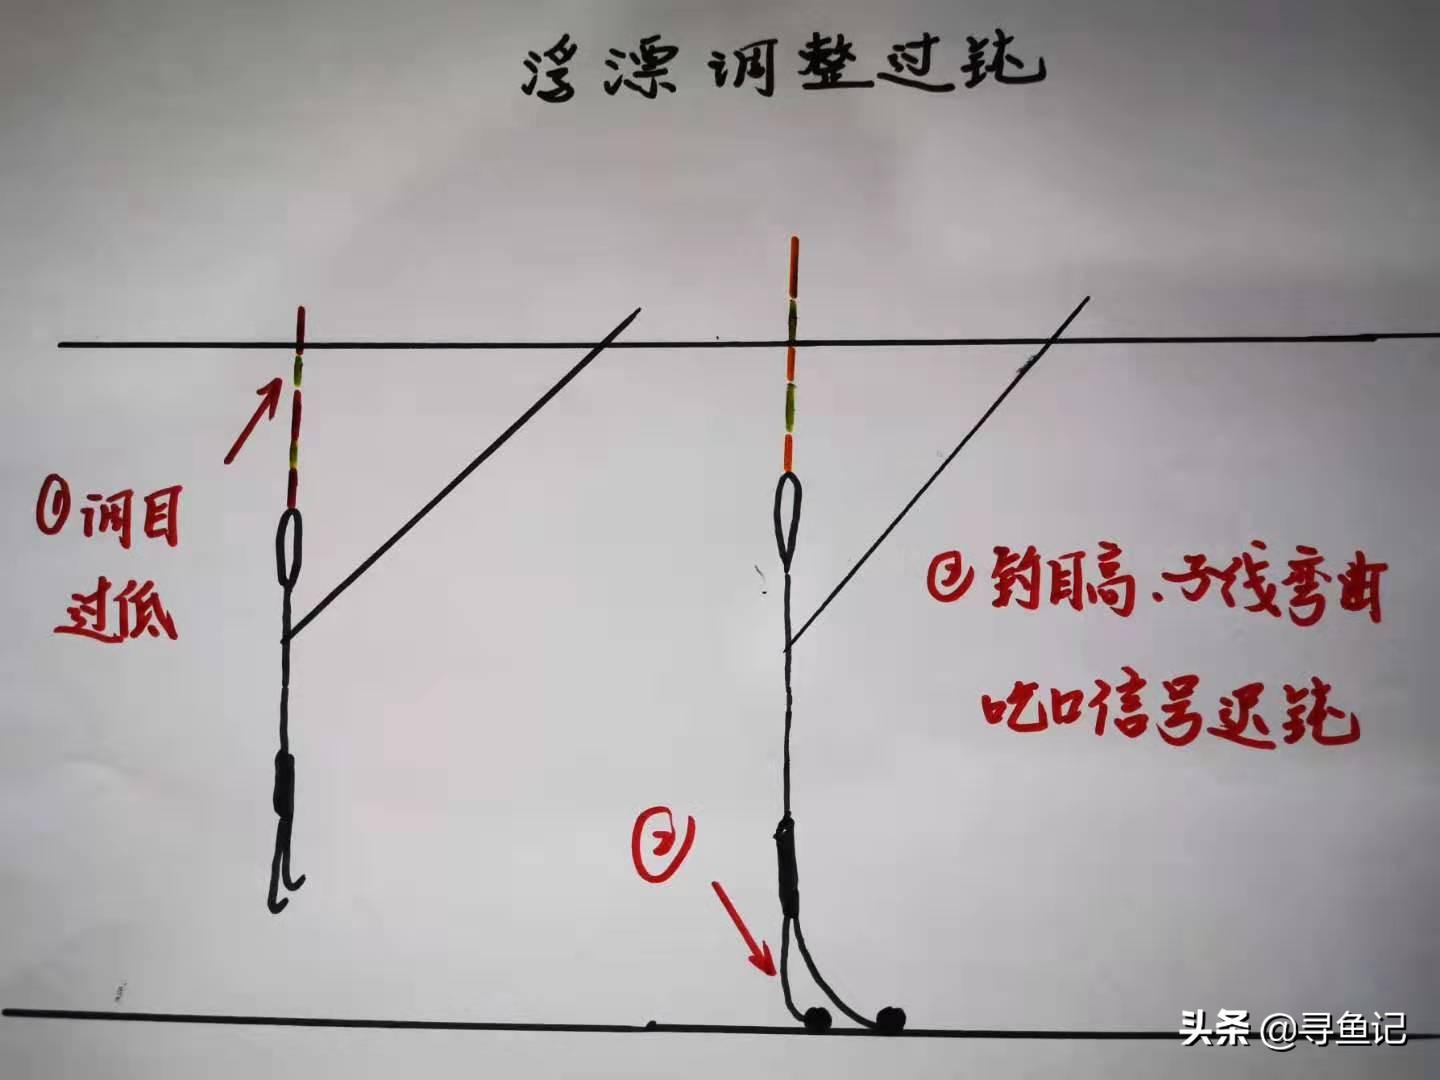 浮漂调整过钝
①调目
过低
②钓目高、子线弯曲
吃口信号迟钝
②
头条 @寻鱼记